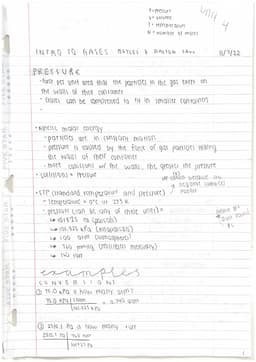 P = pressure
V = volume
T = temperature
N = number of moles
Unit 4
INTRO TO GASES: NOTES & DALTON LAW
11/9/22
PRESSURE
- force per unit area that the particles in the gas exert on
the walls of their container
- gases can be compressed to fit in smaller containers
- kinetic molar energy
- particles are in constant motion
- pressure is caused by the force of gas particles hitting
the walls of their container
- more collisions w/ the walls, the greater the pressure
- collisions = pressure
- STP (standard temperature and pressure)
- temperature = 0°C or 273 K
- pressure (can be any of these units) =
↳ 101325 Pa (pascals)
↳ 101.325 kPa (kilopascals)
↳ 1.00 atm (atmospheres)
↳ 760 mmHg (millimeters mercury)
↳ 760 torr
examples
CONVERSIONS
① 75.0 kPa is how many atm?
75.0 kPa | 1 atm = 0.740 atm
101.325 kPa
② is how many torr
760 torr
101325 Pa